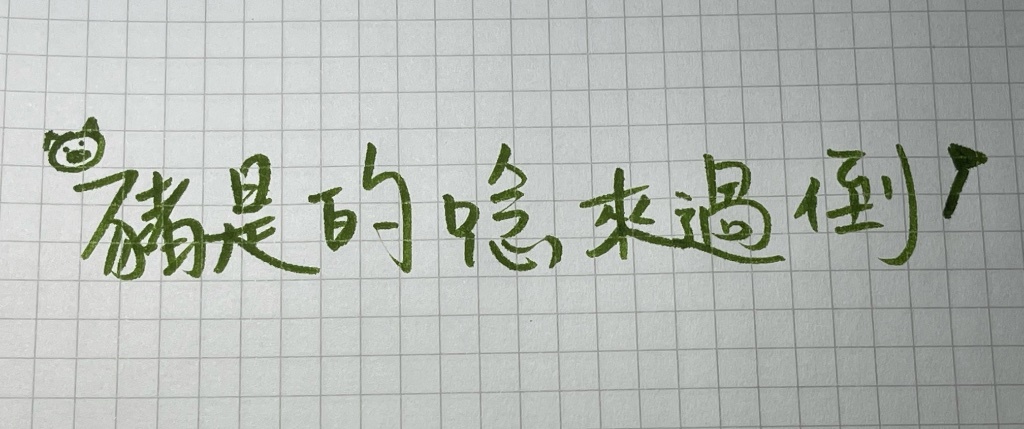 豬是的唸來過倒